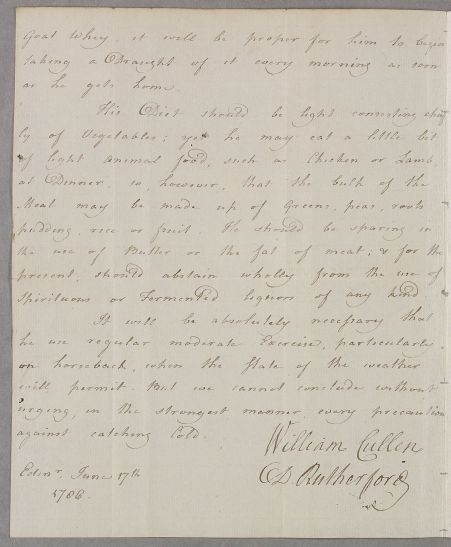 Goat Whey, it will be proper for him to begin
taking a Draught of it every morning as soon
as he gets home.
His Diet should be light consisting chief
ly of Vegetables; yet he may eat a little bit
of light animal food, such as Chicken or Lamb,
at Dinner, so, however, that the bulk of the
Meal may be made up of Greens, peas, roots
pudding, rice or fruit. He should be sparing in
the use of Butter or the fat of meat; & for the
present, should abstain wholly from the use of
Spirituous or Fermented liquors of any kind
It will be absolutely necessary that
he use regular moderate Exercise, particularly
on horseback, when the State of the weather
will permit. But we cannot conclude without
urging, in the strongest manner, every precaution
against catching Cold.
William Cullen
D Rutherford
Edinr. June 17th
1786.